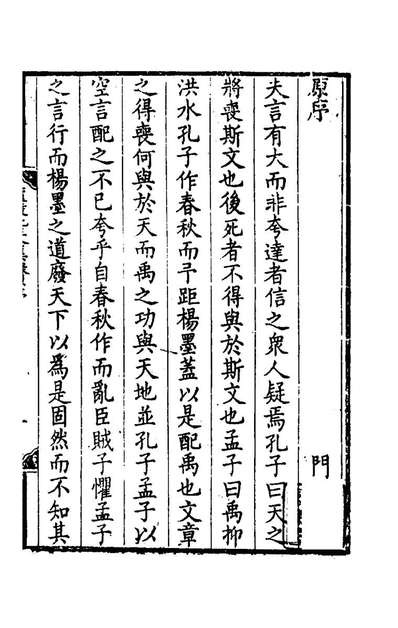 原序
門
夫言有大而非夸達者信之衆人疑焉孔子曰天之
將喪斯文也後死者不得與於斯文也孟子曰禹抑
洪水孔子作春秋而予距楊墨蓋以是配禹也文章
之得喪何與於天而禹之功與天地並孔子孟子以
空言配之不已夸乎自春秋作而亂臣賊子懼孟子
之言行而楊墨之道廢天下以為是固然而不知其